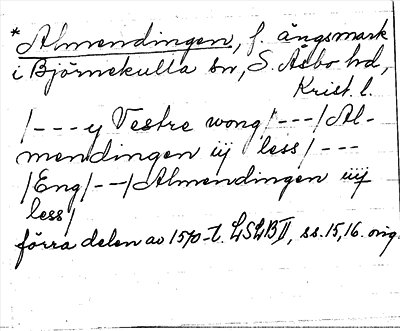 *Almendingen, f. ängsmark
i Björnekulla sn, S. Åsbo hd,
Krist. l.
/---y Vestre wong/---/Al-
mendingen iij less/---
/Eng/---/Almendingen iiij
less/
förra delen av 1570-t. LSLB II, ss. 15, 16. orig.